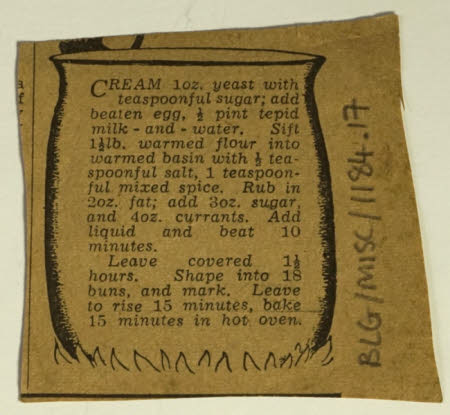 CREAM 1oz. yeast with
teaspoonful sugar; add
beaten egg, ½ pint tepid
milk - and - water. Sift
1½lb. warmed flour into
warmed basin with ½ tea-
spoonful salt, 1 teaspoon-
ful mixed spice. Rub in
2oz. fat; add 3oz. sugar,
and 4oz. currants. Add
liquid and beat 10
minutes.
Leave covered 1½
hours. Shape into 18
buns, and mark. Leave
to rise 15 minutes, bake
15 minutes in hot oven.
BLG/MISC/1184.17